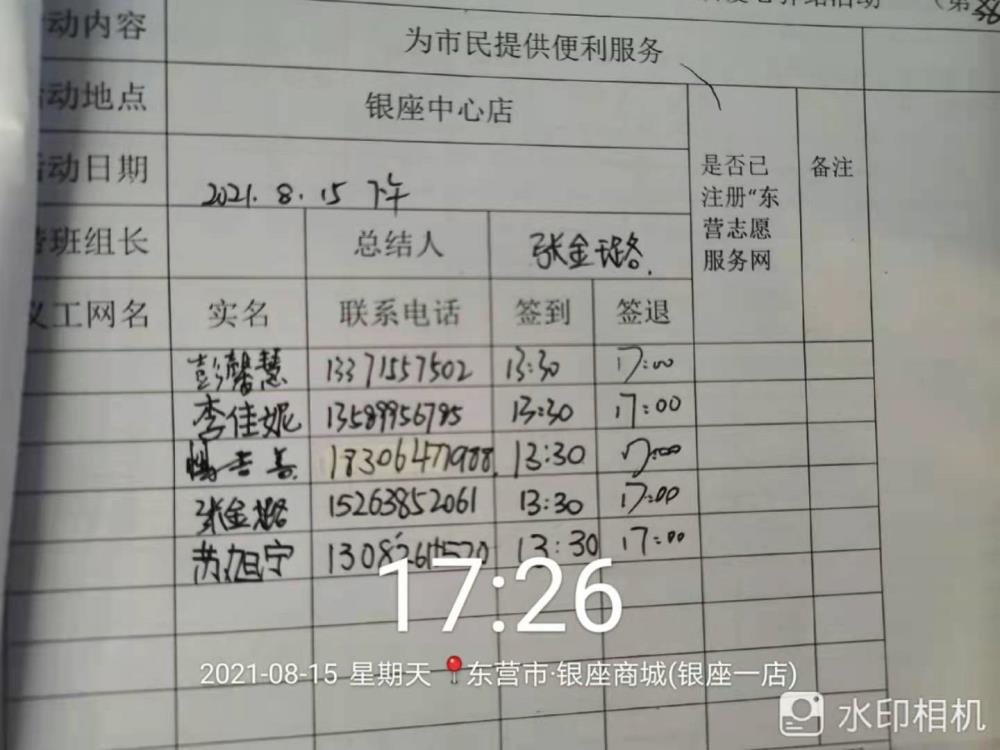 动内容 为市民提供便利服务
动地点 银座中心店
活动日期 2021.8.15 下午
是否已
注册“东
营志愿
服务网
备注
班组长 总结人 张金璐.
义工网名 实名 联系电话 签到 签退
彭馨慧 13371557502 13:30 17:00
李佳妮 13589956785 13:30 17:00
13:30 17:00
张金璐 15263852061 13:30 17:00
苏旭宁 13:30 17:00
17:26
2021-08-15 星期天 东营市·银座商城(银座一店)
水印相机